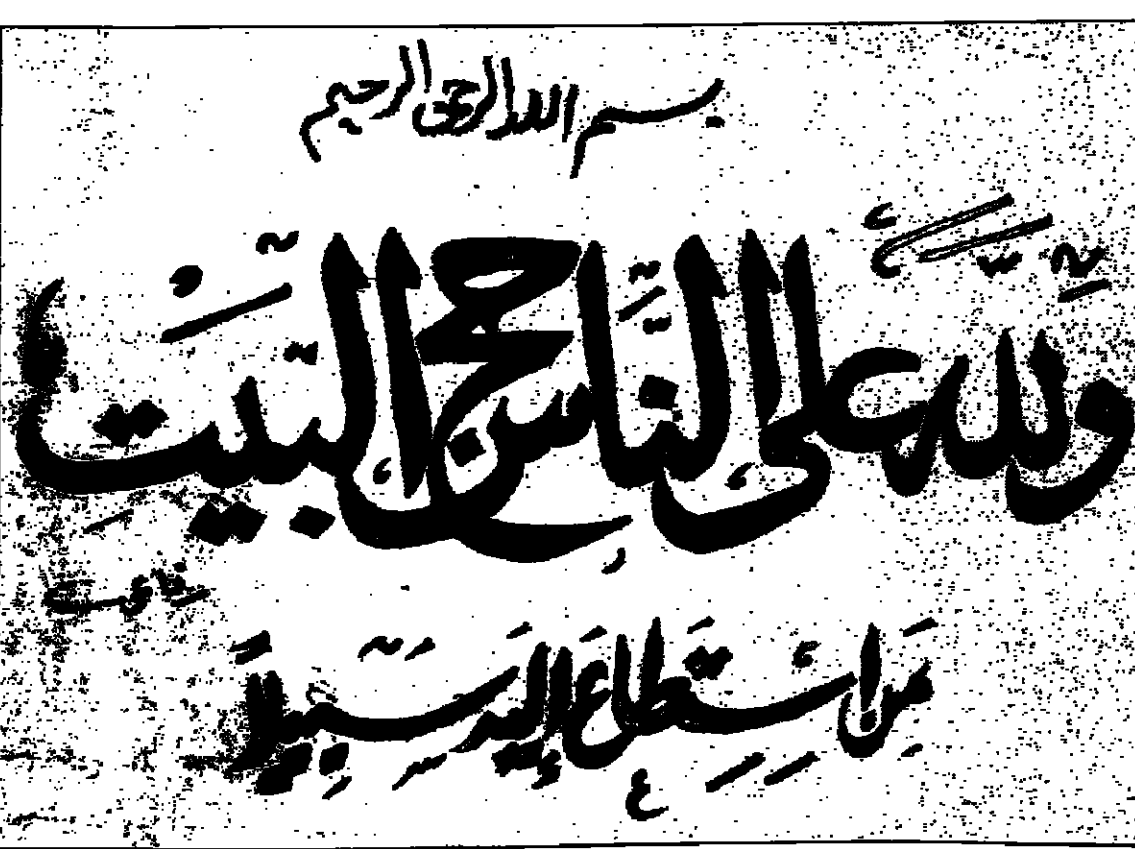 بسم الله الرحمن الرحيم
ولله على الناس حج البيت
من استطاع إليه سبيلاً